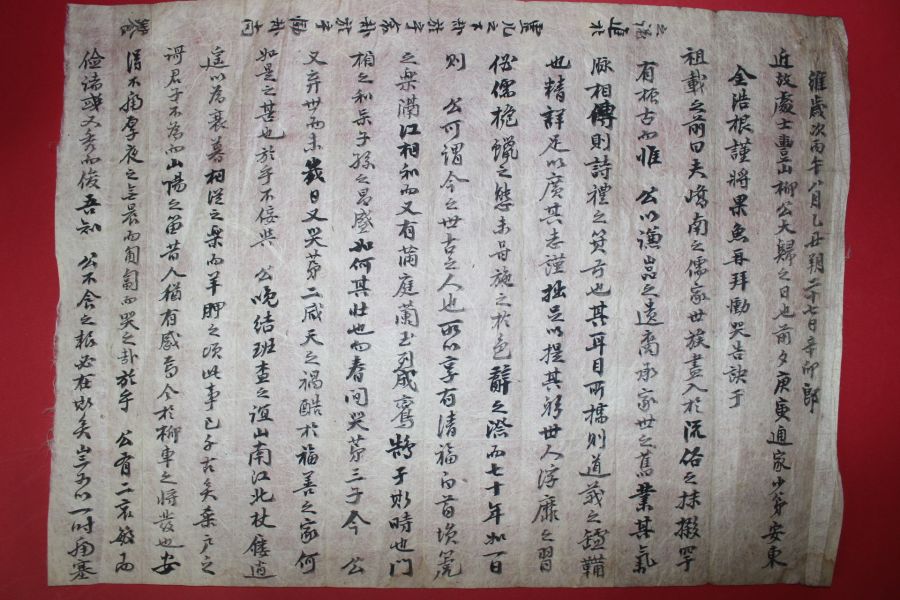 維歲次丙午八月乙丑朔二十七日辛卯卽
近故處士豊山柳公大歸之日也前夕庚寅通家少弟安東
金浩根謹將果魚再拜慟哭告訣于
祖載之前曰夫嶠南之儒家世族盡入於流俗之抹摋罕
有振古而惟 公以謙嵒之遺裔承家世之舊業其氣
脉相傳則詩禮之箕弓也其耳目所擩則道義之鑪鞴
也精詳足以廣其志謹拙足以提其躬世人浮靡之習
俗儒梔蠟之態未嘗施之於色辭之際而七十年如一日
則 公可謂今之世古之人也所以享有清福白首塤篪
之樂湛江相和而又有滿庭蘭玉列成鸞鵠于斯時也門
相之和樂子孫之昌盛如何其壯也而春間哭第三子今 公
又弃世而未幾日又哭第二咸天之禍酷於福善之家何
如是之甚也於乎不佞與 公晩結班查之誼山南江北杖屨逍
遙以爲衰暮相從之樂而羊胛之頃此事已千古矣之
謂君子不爲而山陽之笛昔人猶有感焉今於柳車之將發也安
得不痛夜之無晨而匍匐而哭之於乎 公有二哀敏而
儉諸又秀而俊吾知 公不食之報必在斯矣豈可以一時痛塞
之 靈几之下